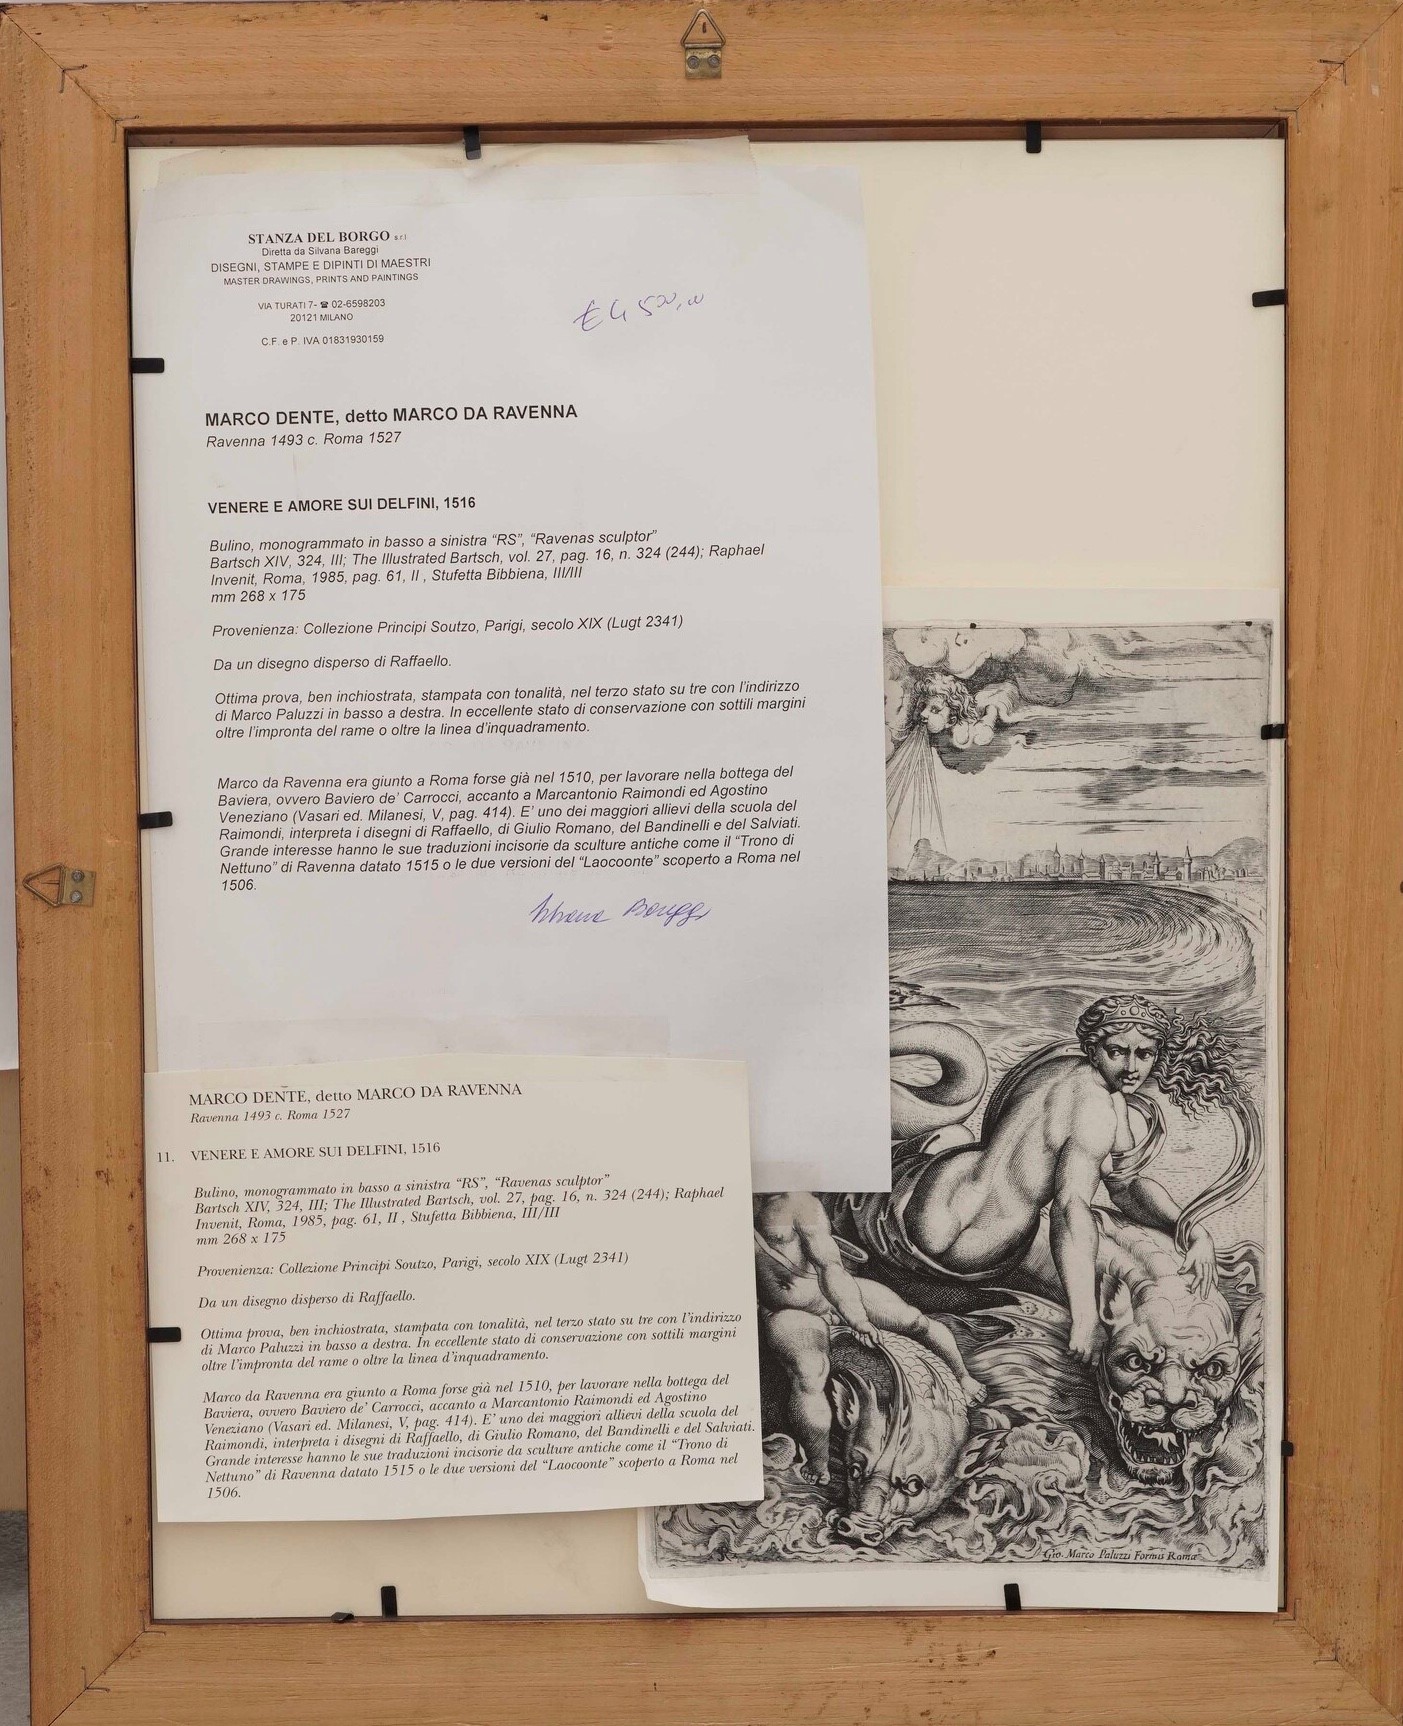 STANZA DEL BORGO s.r.l
Diretta da Silvana Bareggi
DISEGNI, STAMPE E DIPINTI DI MAESTRI
MASTER DRAWINGS, PRINTS AND PAINTINGS
VIA TURATI 7- ☎ 02-6598203
20121 MILANO
C.F. e P. IVA 01831930159
€ 4 500,00
MARCO DENTE, detto MARCO DA RAVENNA
Ravenna 1493 c. Roma 1527
VENERE E AMORE SUI DELFINI, 1516
Bulino, monogrammato in basso a sinistra “RS”, “Ravenas sculptor”
Bartsch XIV, 324, III; The Illustrated Bartsch, vol. 27, pag. 16, n. 324 (244); Raphael
Invenit, Roma, 1985, pag. 61, II , Stufetta Bibbiena, III/III
mm 268 x 175
Provenienza: Collezione Principi Soutzo, Parigi, secolo XIX (Lugt 2341)
Da un disegno disperso di Raffaello.
Ottima prova, ben inchiostrata, stampata con tonalità, nel terzo stato su tre con l’indirizzo
di Marco Paluzzi in basso a destra. In eccellente stato di conservazione con sottili margini
oltre l’impronta del rame o oltre la linea d’inquadramento.
Marco da Ravenna era giunto a Roma forse già nel 1510, per lavorare nella bottega del
Baviera, ovvero Baviero de’ Carrocci, accanto a Marcantonio Raimondi ed Agostino
Veneziano (Vasari ed. Milanesi, V, pag. 414). E’ uno dei maggiori allievi della scuola del
Raimondi, interpreta i disegni di Raffaello, di Giulio Romano, del Bandinelli e del Salviati.
Grande interesse hanno le sue traduzioni incisorie da sculture antiche come il “Trono di
Nettuno” di Ravenna datato 1515 o le due versioni del “Laocoonte” scoperto a Roma nel
1506.
Silvana Bareggi
MARCO DENTE, detto MARCO DA RAVENNA
Ravenna 1493 c. Roma 1527
11. VENERE E AMORE SUI DELFINI, 1516
Bulino, monogrammato in basso a sinistra “RS”, “Ravenas sculptor”
Bartsch XIV, 324, III; The Illustrated Bartsch, vol. 27, pag. 16, n. 324 (244); Raphael
Invenit, Roma, 1985, pag. 61, II , Stufetta Bibbiena, III/III
mm 268 x 175
Provenienza: Collezione Principi Soutzo, Parigi, secolo XIX (Lugt 2341)
Da un disegno disperso di Raffaello.
Ottima prova, ben inchiostrata, stampata con tonalità, nel terzo stato su tre con l’indirizzo
di Marco Paluzzi in basso a destra. In eccellente stato di conservazione con sottili margini
oltre l’impronta del rame o oltre la linea d’inquadramento.
Marco da Ravenna era giunto a Roma forse già nel 1510, per lavorare nella bottega del
Baviera, ovvero Baviero de’ Carrocci, accanto a Marcantonio Raimondi ed Agostino
Veneziano (Vasari ed. Milanesi, V, pag. 414). E’ uno dei maggiori allievi della scuola del
Raimondi, interpreta i disegni di Raffaello, di Giulio Romano, del Bandinelli e del Salviati.
Grande interesse hanno le sue traduzioni incisorie da sculture antiche come il “Trono di
Nettuno” di Ravenna datato 1515 o le due versioni del “Laocoonte” scoperto a Roma nel
1506.
Gio. Marco Paluzzi Formis Romæ